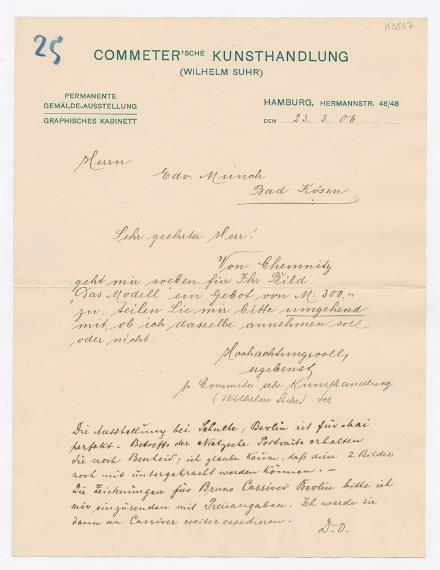 25
K3847
COMMETER'SCHE KUNSTHANDLUNG
(WILHELM SUHR)
PERMANENTE
GEMÄLDE-AUSSTELLUNG
GRAPHISCHES KABINETT
HAMBURG, HERMANNSTR. 46/48
DEN 23. 3. 06
Herrn
Edv. Münch
Bad Kösen
Sehr geehrter Herr!
Von Chemnitz
geht mir soeben für Ihr Bild
"Das Modell" ein Gebot von M: 300.-
zu. Teilen Sie mir bitte umgehend
mit, ob ich dasselbe annehmen soll
oder nicht.
Hochachtungsvoll,
ergebenst
p. Commeter'sche Kunsthandlung
(Wilhelm Suhr)
Die Ausstellung bei Schulte, Berlin ist für Mai
perfekt. Betreffs der Nietzsche Portraits erhalten
Sie noch Bescheid; ich glaube kaum, dass diese 2 Bilder
noch mit untergebracht werden können. -
Die Zeichnungen für Bruno Cassirer Berlin bitte ich
mir einzusenden mit Preisangaben. Ich werde sie
dann an Cassirer weiter expedieren.
D. O.